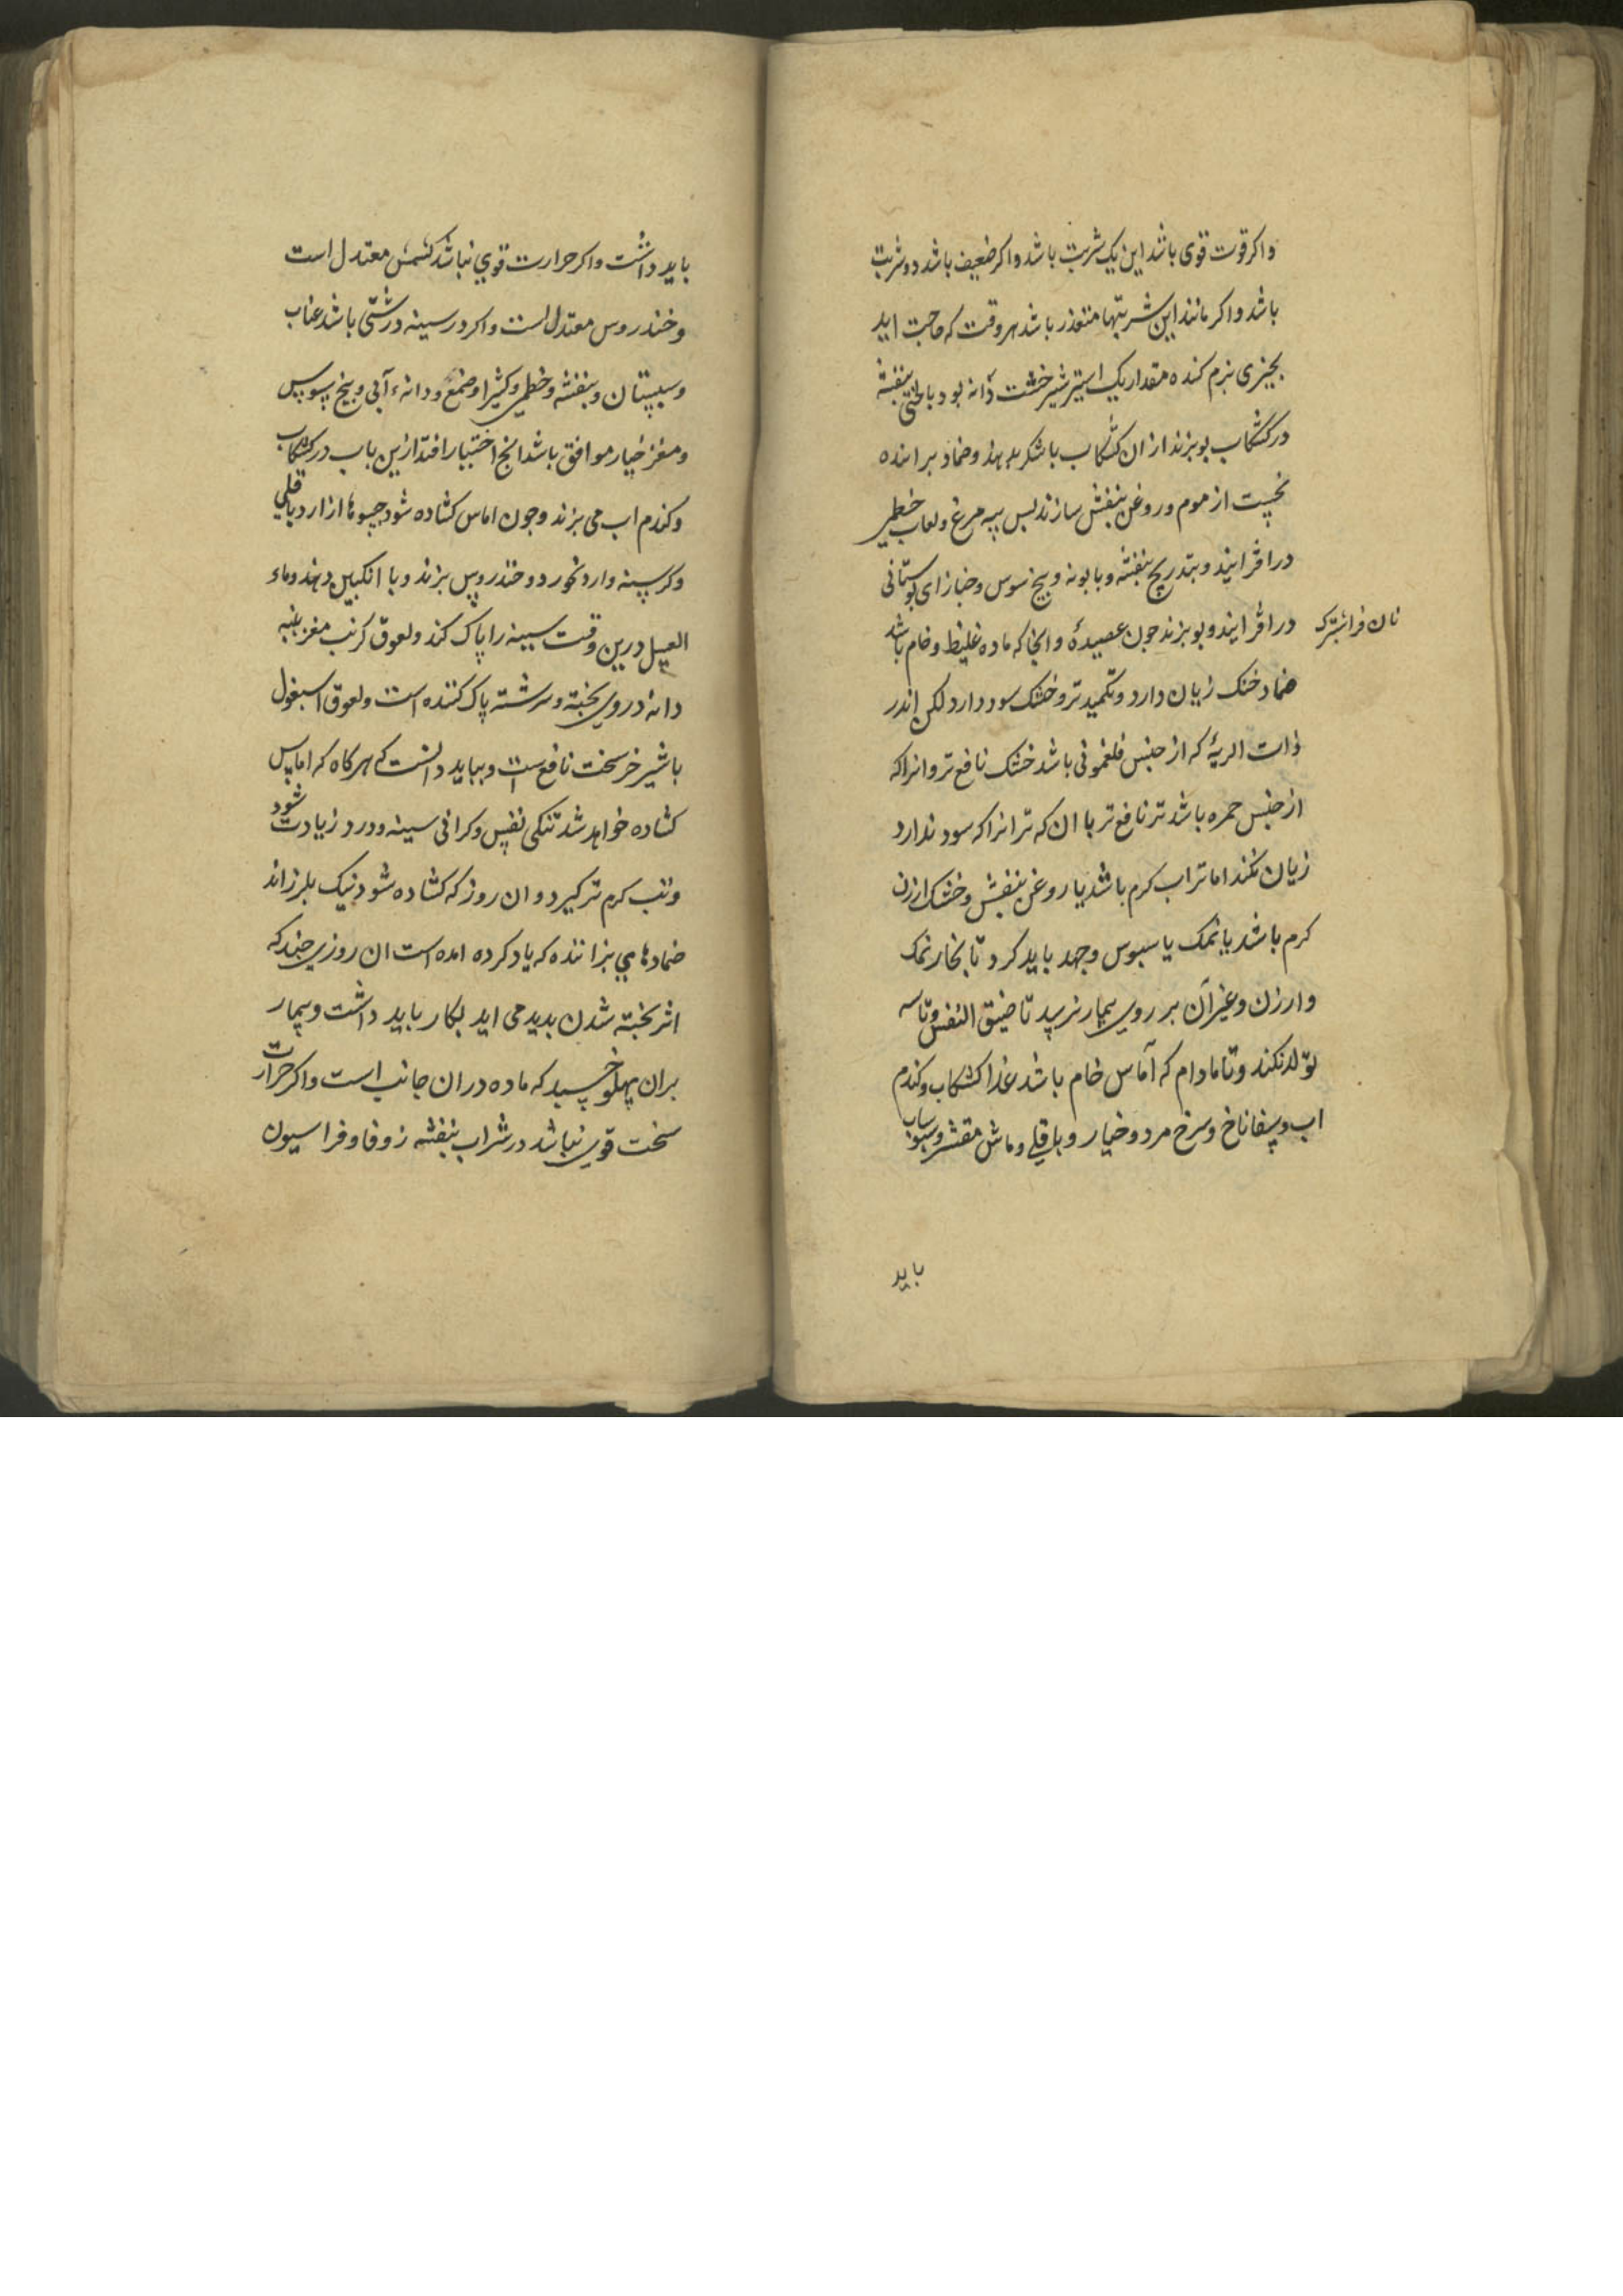 واکر قوت قوی باشد این یک شربت باشد واکر ضعیف باشد دو شربت
باشد واکر مانند این شربتها متعذر باشد هر وقت که حاجت اید
بجیزی نرم کننده مقدار یک استیر شیرخشت دانه بود با لختی بنفشه
در کشکاب بوبزند ازان کشکاب با شکر بدهند وضماد براننده
نخست از موم وروغن بنفش سازند بس بیه مرغ ولعاب خطمی
درافزایند وبتدریج بنفشه وبابونه وبیخ سوس وخبازای بوستانی
درافزایند وبوبزند جون عصیدهٔ وانجا که ماده غلیظ وخام باشد
نان
ضماد خنک زیان دارد وتکمید تر وخشک سود دارد لکن اندر
ذات الریهٔ که از جنس فلغمونی باشد خشک نافع تر وانرا که
از جنس حمره باشد تر نافع تر با ان که تر انرا که سود ندارد
زیان نکند اما تر اب کرم باشد یا روغن بنفش وخشک ارزن
کرم باشد یا نمک یا سبوس وجهد باید کرد تا بخار نمک
وارزن وغیر آن بر روی بیمار نرسد تا ضیق النفس وتاسه
تولد نکند وتا مادام که آماس خام باشد غذا کشکاب وکندم
اب وسفاناخ وسرخ مرد وخیار وباقلی وماش مقشر وسبوساب
باید
باید داشت واکر حرارت قوی نباشد کشمش معتدل است
وخندروس معتدل است واکر در سینه درشتی باشد عناب
وسبستان وبنفشه وخطمی وکثیرا وصمغ ودانهٔ آبی وبیخ سوس
ومغز خیار موافق باشد انج اختیار افتد ازین باب در کشکاب
وکندم اب می بزند وجون اماس کشاده شود حسوها از ارد باقلی
وکرسنه وارد نخود وخندروس بزند وبا انکبین دهند وماء
العسل درین وقت سینه را پاک کند ولعوق کرنب مغز بنبه
دانه در وی بخته وسرشته پاک کننده است ولعوق اسبغول
با شیر خر سخت نافع است وبباید دانست که هر کاه که اماس
کشاده خواهد شد تنکی نفس وکرانی سینه ودرد زیادت شود
وتب کرم تر کیرد وان روز که کشاده شود نیک بلرزاند
ضمادهای بزاننده که یاد کرده امده است ان روزی جند که
اثر بخته شدن بدید می اید بکار باید داشت وبیمار
بران پهلو خسبد که ماده دران جانب است واکر حرارت
سخت قوی نباشد در شراب بنفشه زوفا وفراسیون